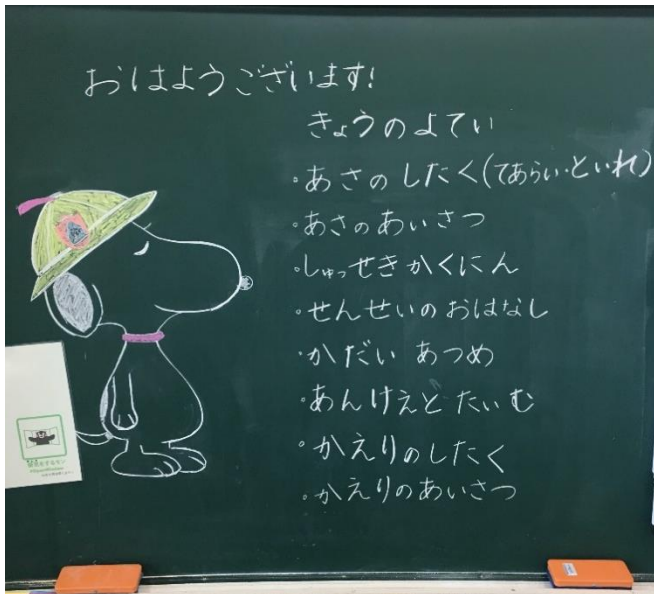 おはようございます!
きょうのよてい
・あさのしたく(てあらい・といれ)
・あさのあいさつ
・しゅっせきかくにん
・せんせいのおはなし
・かだい あつめ
・あんけえと たいむ
・かえりのしたく
・かえりのあいさつ